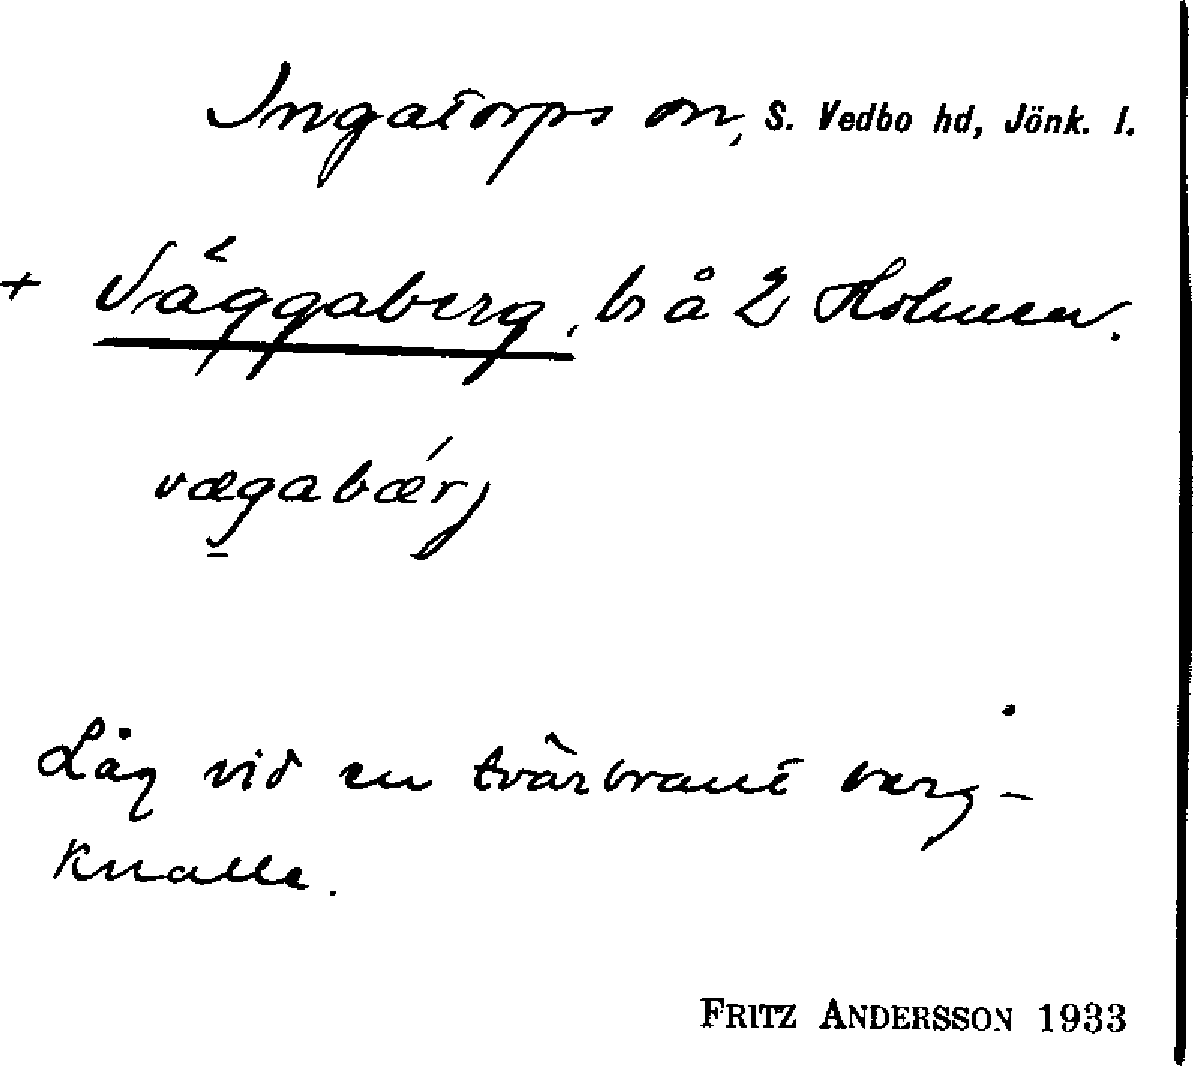 Ingatorps sn, S. Vedbo hd, Jönk. l.
+ Väggaberg, bs å 2 Holmen.
vægabærj
Låg vid en tvärbrant berg-
knalle.
FRITZ ANDERSSON 1933